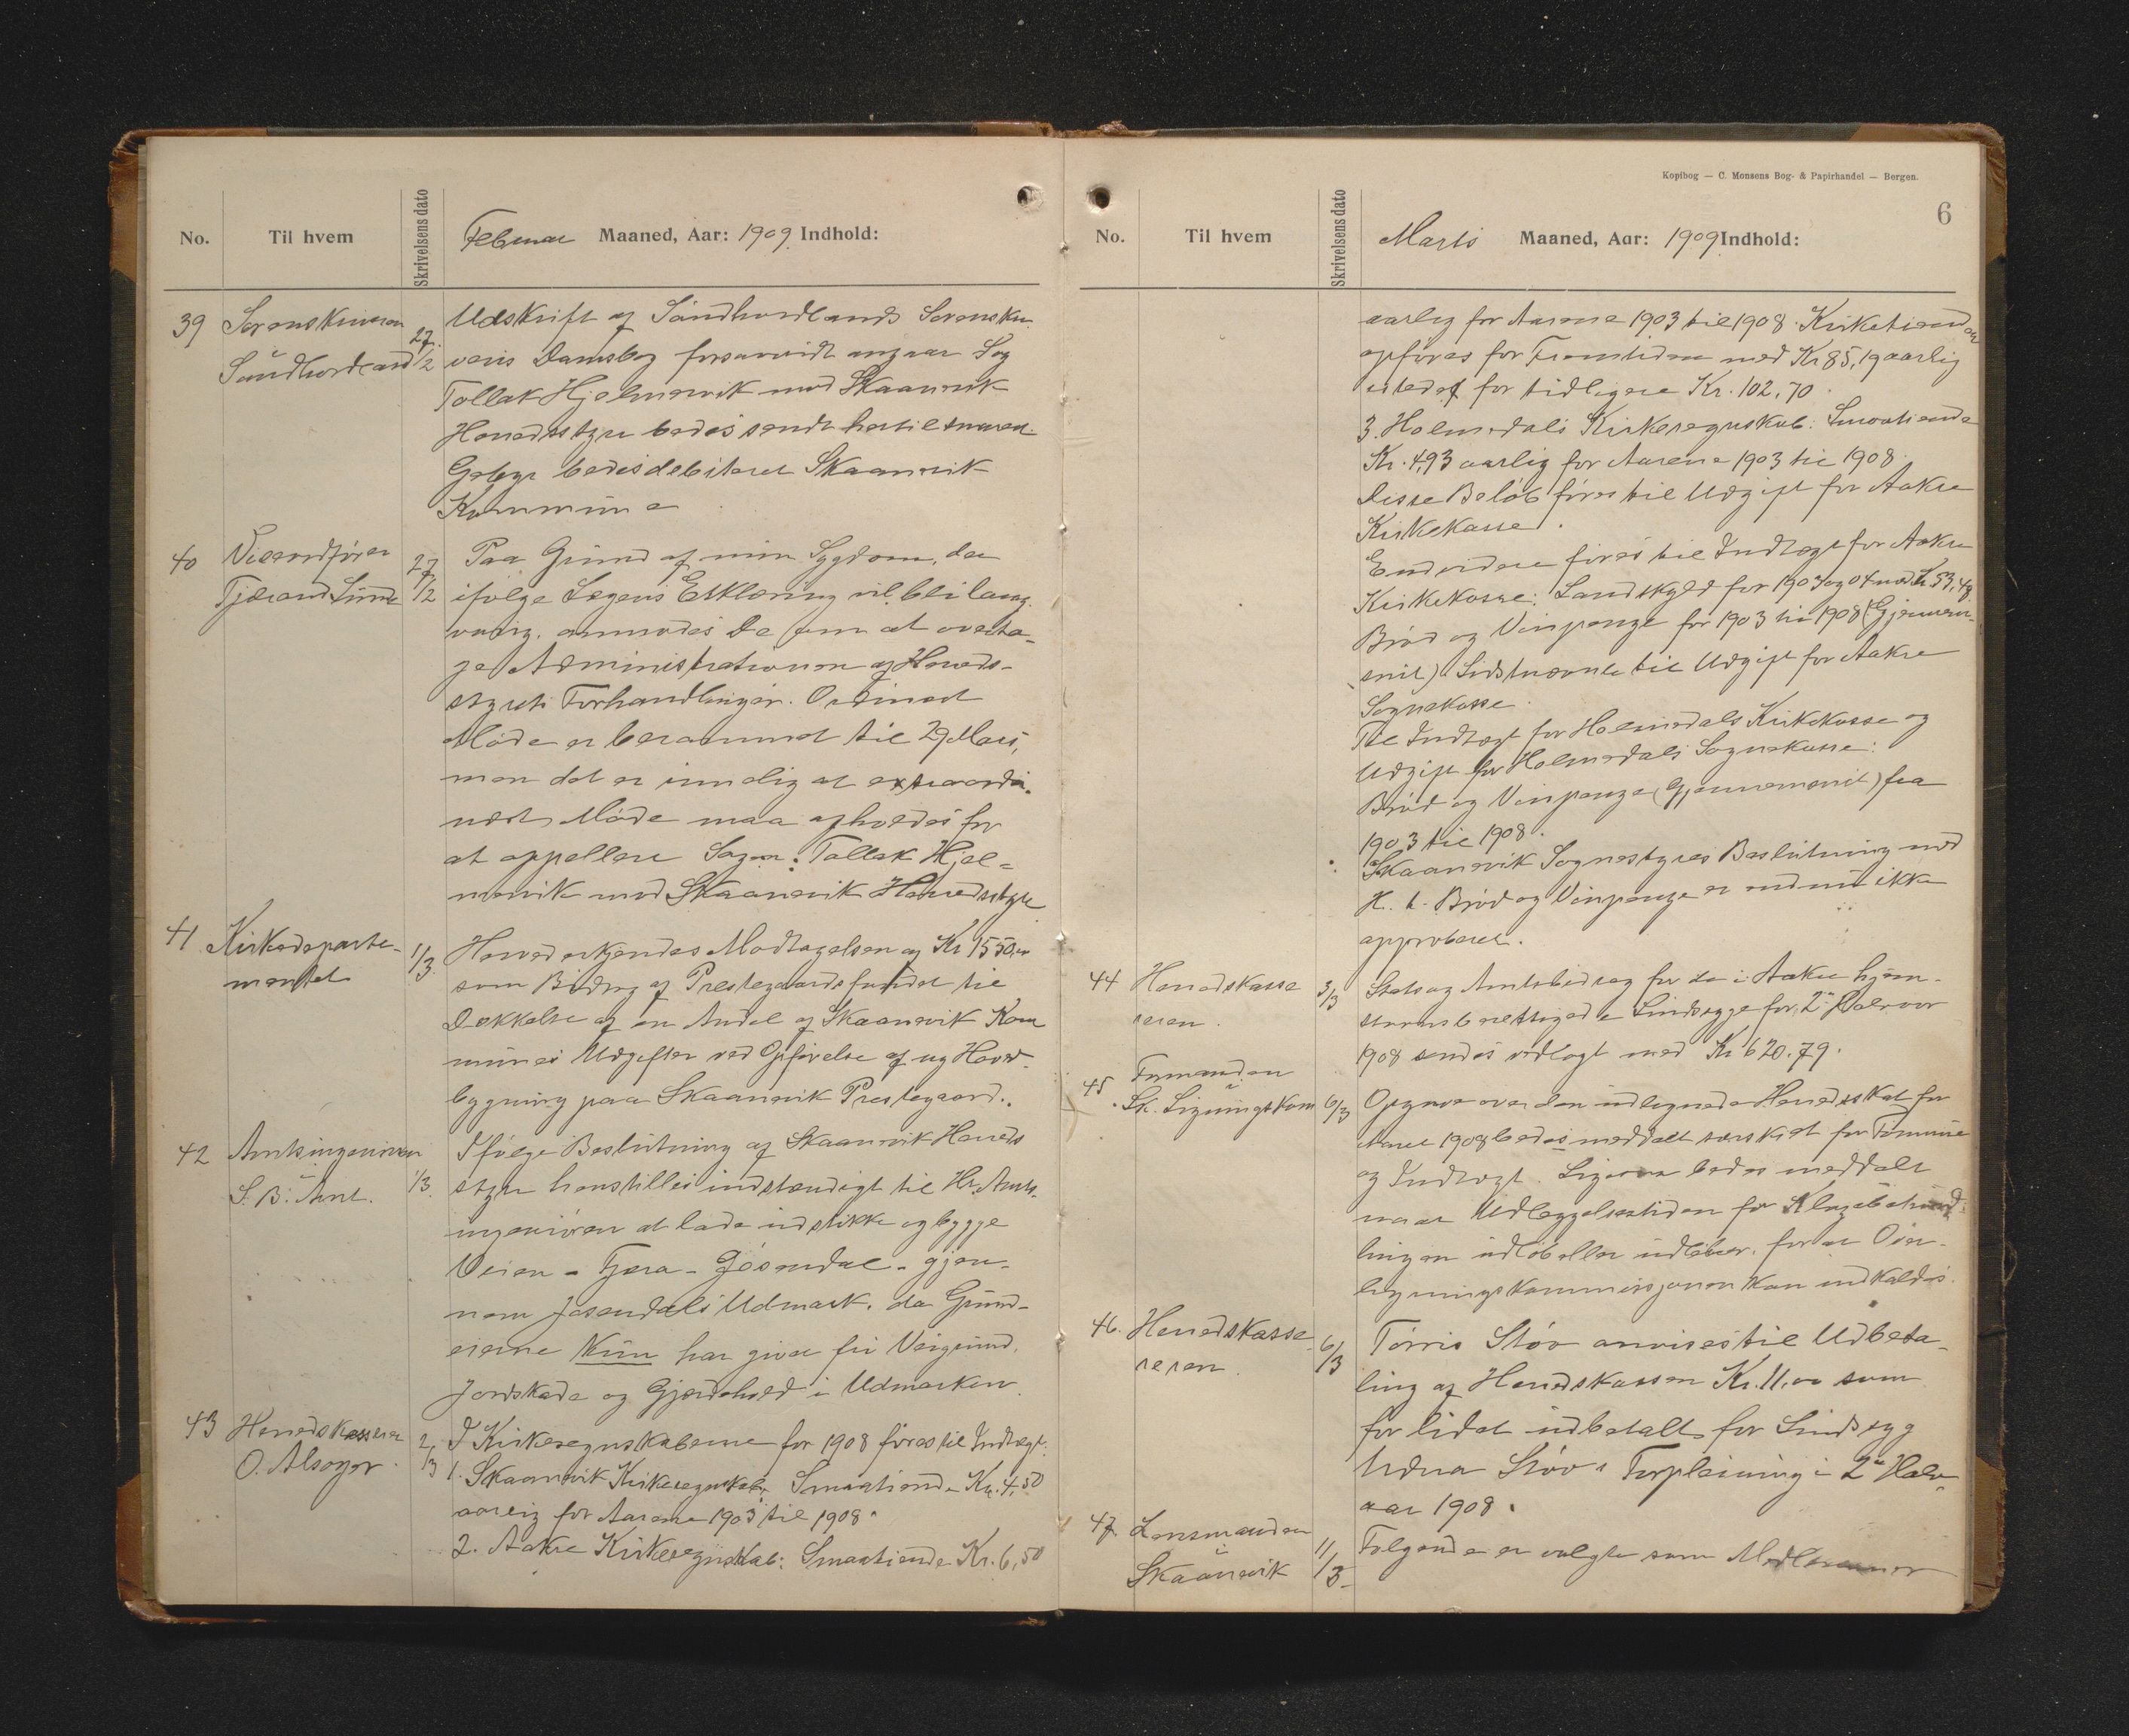 No. Til hvem Skrivelsens dato Februar Maaned, Aar: 1909 Indhold:
39 Sorenskriveren Søndhordland 27/2
Udskrift af Søndhordlands Sorenskri-
veris Domsbog forsaavidt angaar Sag
Tollak Hjelmervik mod Skaanevik
Herredsstyre bedes sendt hertil snarest
Gebyr bedes debiteret Skaanevik
Kommune
40 Viceordfører Tjerand Lunde 27/2
Paa Grund af min Sygdom, der
ifølge Lægens Erklæring vil bli lang-
varig, anmodes De om at overta-
ge Administrationen af Herreds-
styrets Forhandlinger. Ordinært
Møde er berammet til 29 Mars,
men det er muelig at extraordi-
nært Møde maa afholdes for
at appellere Sagen: Tollak Hjel-
mervik mod Skaanevik Herredsstyre
41 Kirkedeparte-
mentet 1/3
Herved erkjendes Modtagelsen af Kr 1550,00
som Bidrag af Prestegaardsfondet til
Dækkelse af en Andel af Skaanevik Kom
munes Udgifter ved Opførelse af ny Hoved-
bygning paa Skaanevik Prestegaard.
42 Amtsingeniøren
S. B. Anst. 1/3
Ifølge Beslutning af Skaanevik Herreds
styre henstilles indstændigt til Hr. Amts-
ingeniøren at lade udstikke og bygge
Veien - Fjæra - Jøsendal - gjen-
nem Jøsendals Udmark, da Grund-
eierne kun har givet fri Veigrund,
Jordskade og Gjerdehold i Udmarken
43 Herredskasserer
O. Alsager 2/3
I Kirkeregnskaberne for 1908 føres til Indtægt:
1. Skaanevik Kirkeregnskab: Smaatiende Kr. 4,50
aarlig for Aarene 1903 til 1908.
2. Aakre Kirkeregnskab: Smaatiende Kr. 6,50
Kopibog — C. Monsens Bog- & Papirhandel — Bergen.
6
No. Til hvem Skrivelsens dato Marts Maaned, Aar: 1909 Indhold:
aarlig for Aarene 1903 til 1908. Kirketienden
opføres for Fremtiden med Kr 85,19 aarlig
istedet for tidligere Kr. 102,70.
3. Holmedals Kirkeregnskab: Smaatiende
Kr. 4,93 aarlig for Aarene 1903 til 1908.
Disse Beløb føres til Udgift for Aakre
Kirkekasse.
Endvidere føres til Indtægt for Aakre
Kirkekasse: Landskyld for 1903 og 04 med Kr. 33,48
Brød og Vinpenge for 1903 til 1908 (Gjennem-
snit) Sidstnævnte til Udgift for Aakre
Sognekasse.
Til Indtægt for Holmedals Kirkekasse og
Udgift for Holmedals Sognekasse:
Brød og Vinpenge (Gjennemsnit) fra
1903 til 1908.
Skaanevik Sognestyres Beslutning med
H. t. Brød og Vinpenge er endnu ikke
approberet.
44 Herredskasse
reren. 3/3
Stats og Amtsbidrag for de i Aakre hjem-
stavnsberettigede Sindssyge for 2det Halvaar
1908 sendes vedlagt med Kr 620.79.
45 Formanden
i Sk. Ligningskom 6/3
Opgave over den udlignede Herredsskat for
Aaret 1908 bedes meddelt særskilt for Formue
og Indtægt. Ligesaa bedes meddelt
naar Udlæggelsestiden for Klagebehand-
lingen udløb eller udløber, for at Over-
ligningskommissionen kan indkaldes.
46. Herredskasse
reren. 6/3
Tørris Støv anvises til Udbeta-
ling af Herredskassen Kr. 11,00 som
for lidet udbetalt for Sindssyg
Udna Støv's Forpleining i 2det Halv-
aar 1908.
47 Lensmanden
i Skaanevik 11/3
Følgende er valgte som Medlemmer